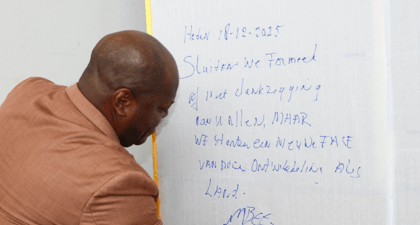 Heden 18-12-2025
Sluiten we Formeel
af met dankzegging
aan U allen, MAAR
WE starten een NIEUWE FASE
VAN ONZE Ontwikkeling Als
LAND.